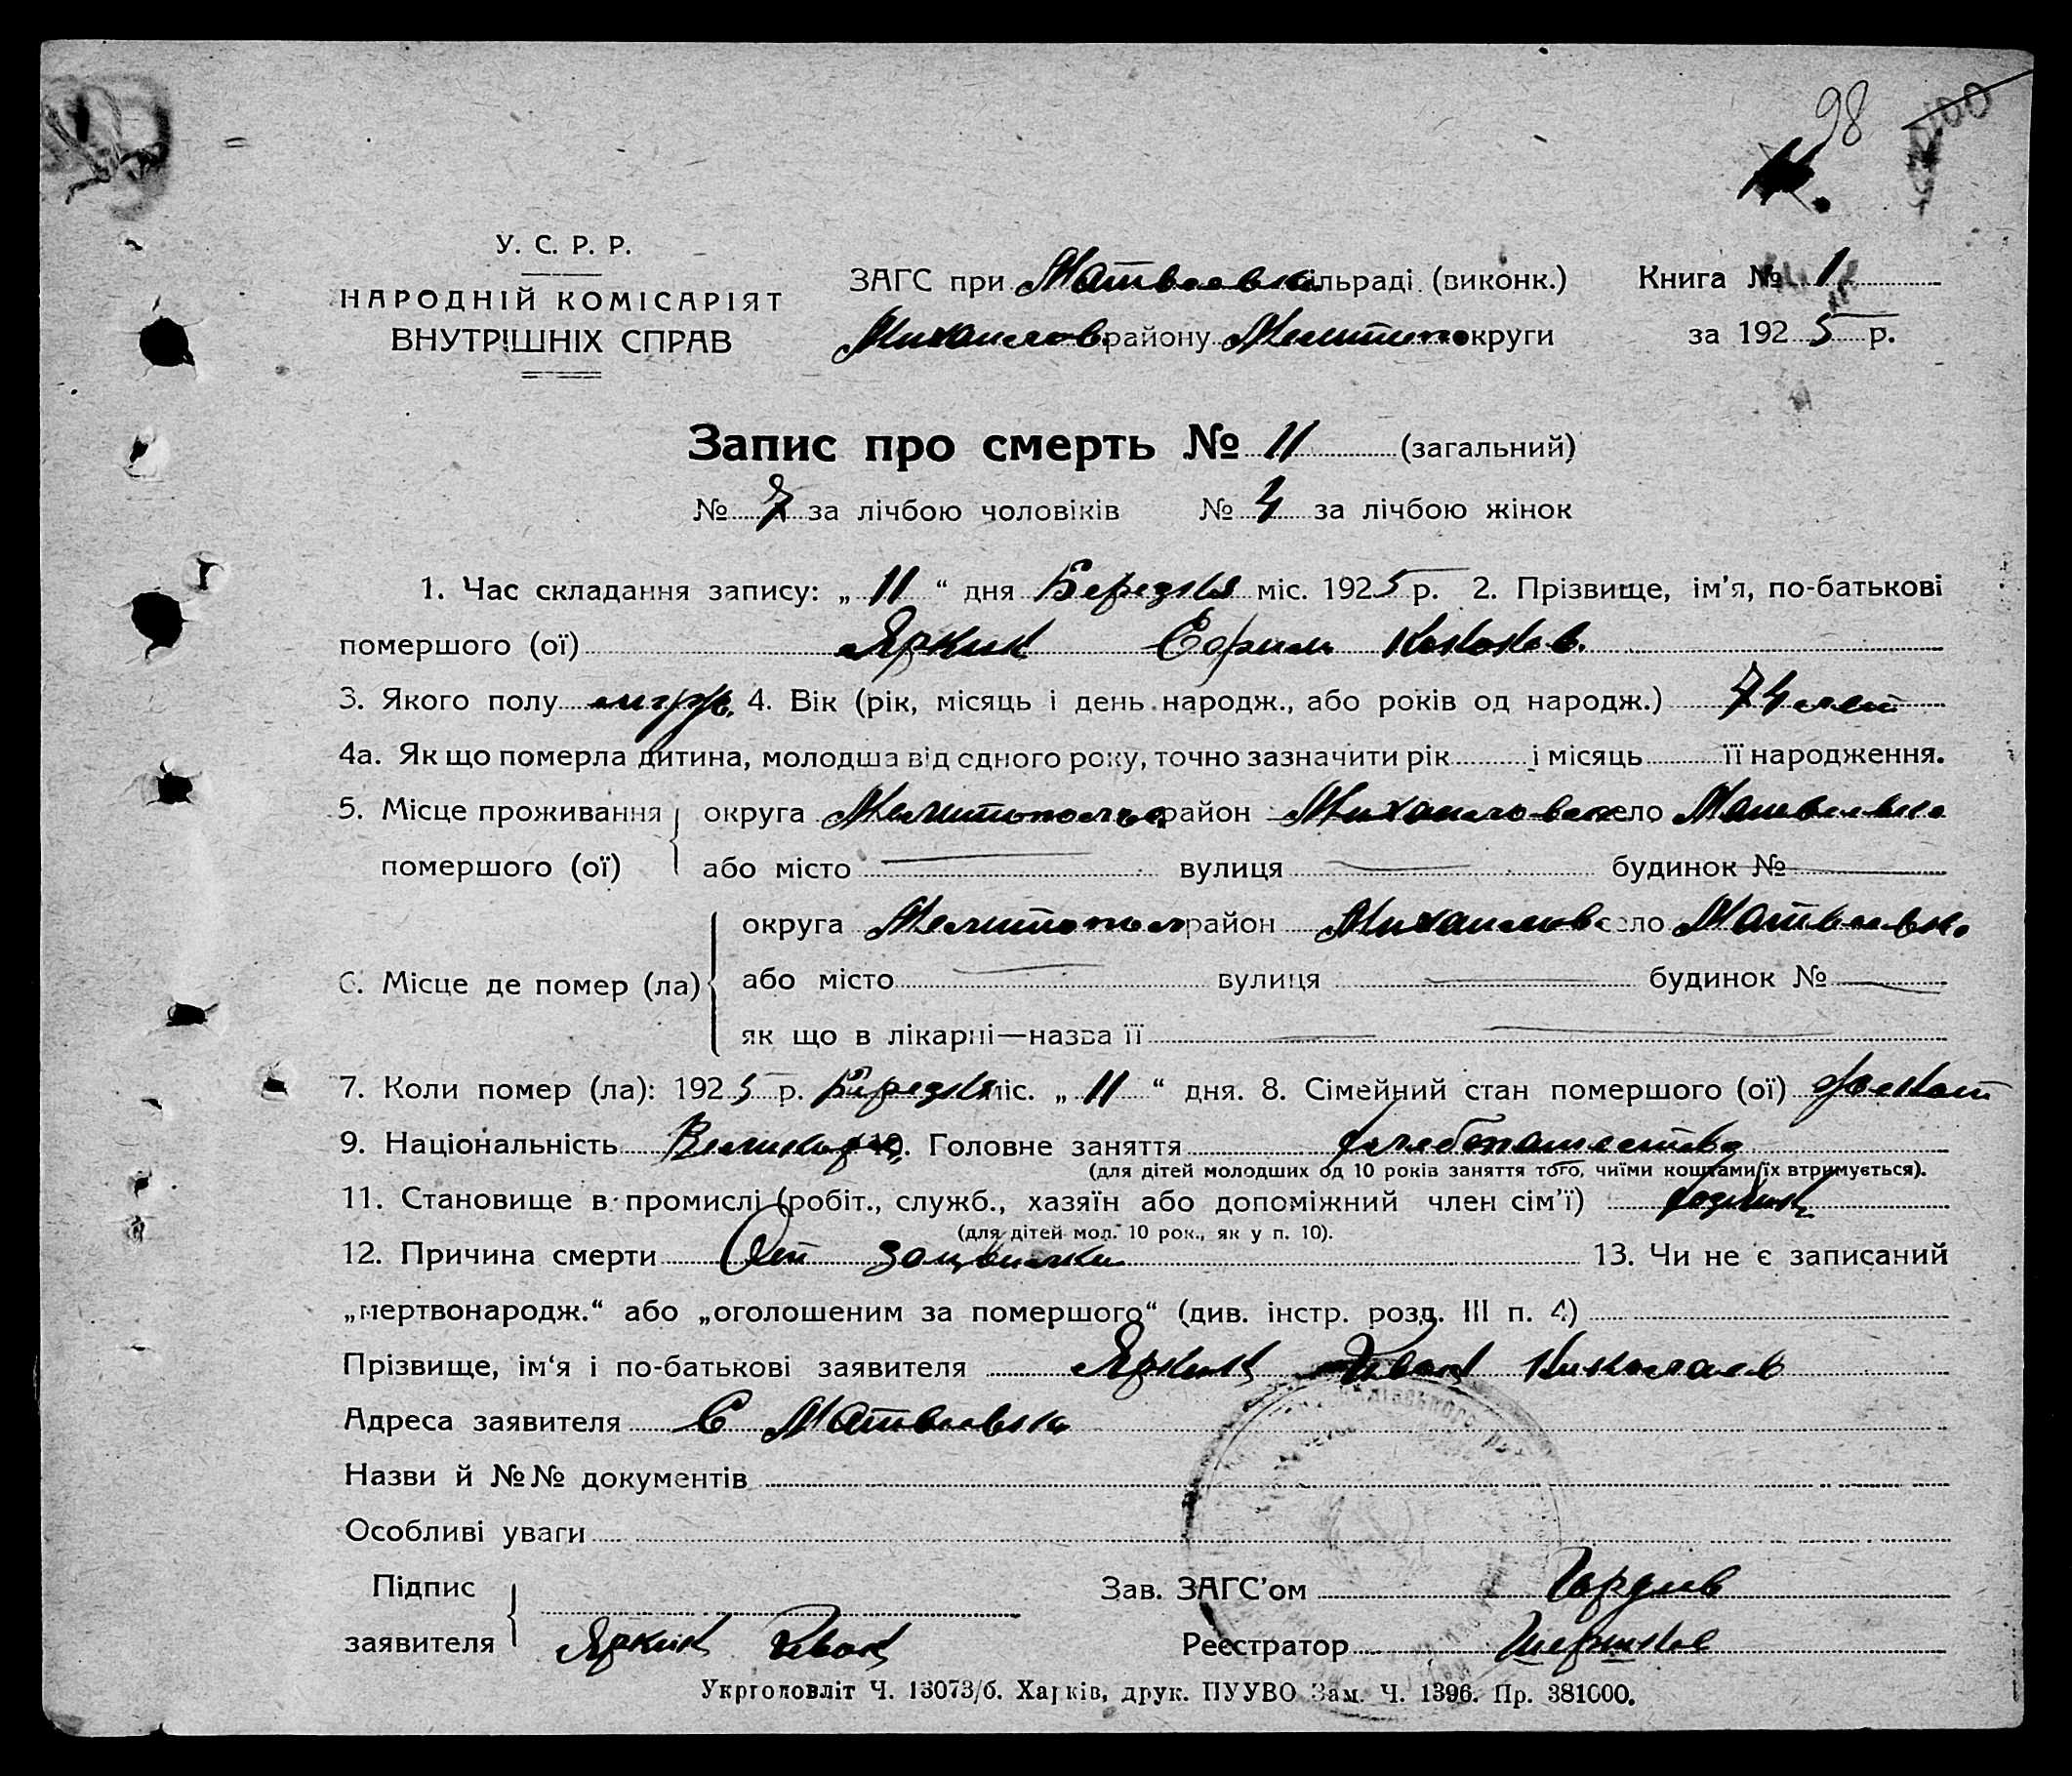 98 100
У. С. Р. Р.
НАРОДНІЙ КОМІСАРІЯТ
ВНУТРІШНІХ СПРАВ
ЗАГС при Матвеевск сільраді (виконк.) Книга № 1
Михайлов. району Мелитоп округи за 1925 р.
Запис про смерть № 11 (загальний)
№ 7 за лічбою чоловіків № 4 за лічбою жінок
1. Час складання запису: „ 11 “ дня Березня міс. 1925 р. 2. Прізвище, ім'я, по-батькові
помершого (ої) Яркин Ефим Кононов.
3. Якого полу муж. 4. Вік (рік, місяць і день народж., або років од народж.) 74 лет
4а. Як що померла дитина, молодша від одного року, точно зазначити рік і місяць її народження.
5. Місце проживання округа район село Матвеевка
помершого (ої) або місто вулиця будинок №
округа Мелитопол район Михайлов село Матвеевка
6. Місце де помер (ла)
або місто вулиця будинок №
як що в лікарні—назва її
7. Коли помер (ла): 1925 р. Березня міс. „ 11 “ дня. 8. Сімейний стан помершого (ої) женат
9. Національність 10. Головне заняття хлебопашество
(для дітей молодших од 10 років заняття того, чиїми коштами їх втримується).
11. Становище в промислі (робіт., служб., хазяїн або допоміжний член сім'ї)
(для дітей мол. 10 рок., як у п. 10).
12. Причина смерти От 13. Чи не є записаний
„мертвонародж.“ або „оголошеним за помершого“ (див. інстр. розд. III п. 4)
Прізвище, ім'я і по-батькові заявителя Яркин Иван Николаев
Адреса заявителя С Матвеевка
Назви й №№ документів
Особливі уваги
Підпис Зав. ЗАГС'ом
заявителя Яркин Иван Реєстратор
Укрголовліт Ч. 13073/б. Харків, друк. ПУУВО Зам. Ч. 1396. Пр. 381000.